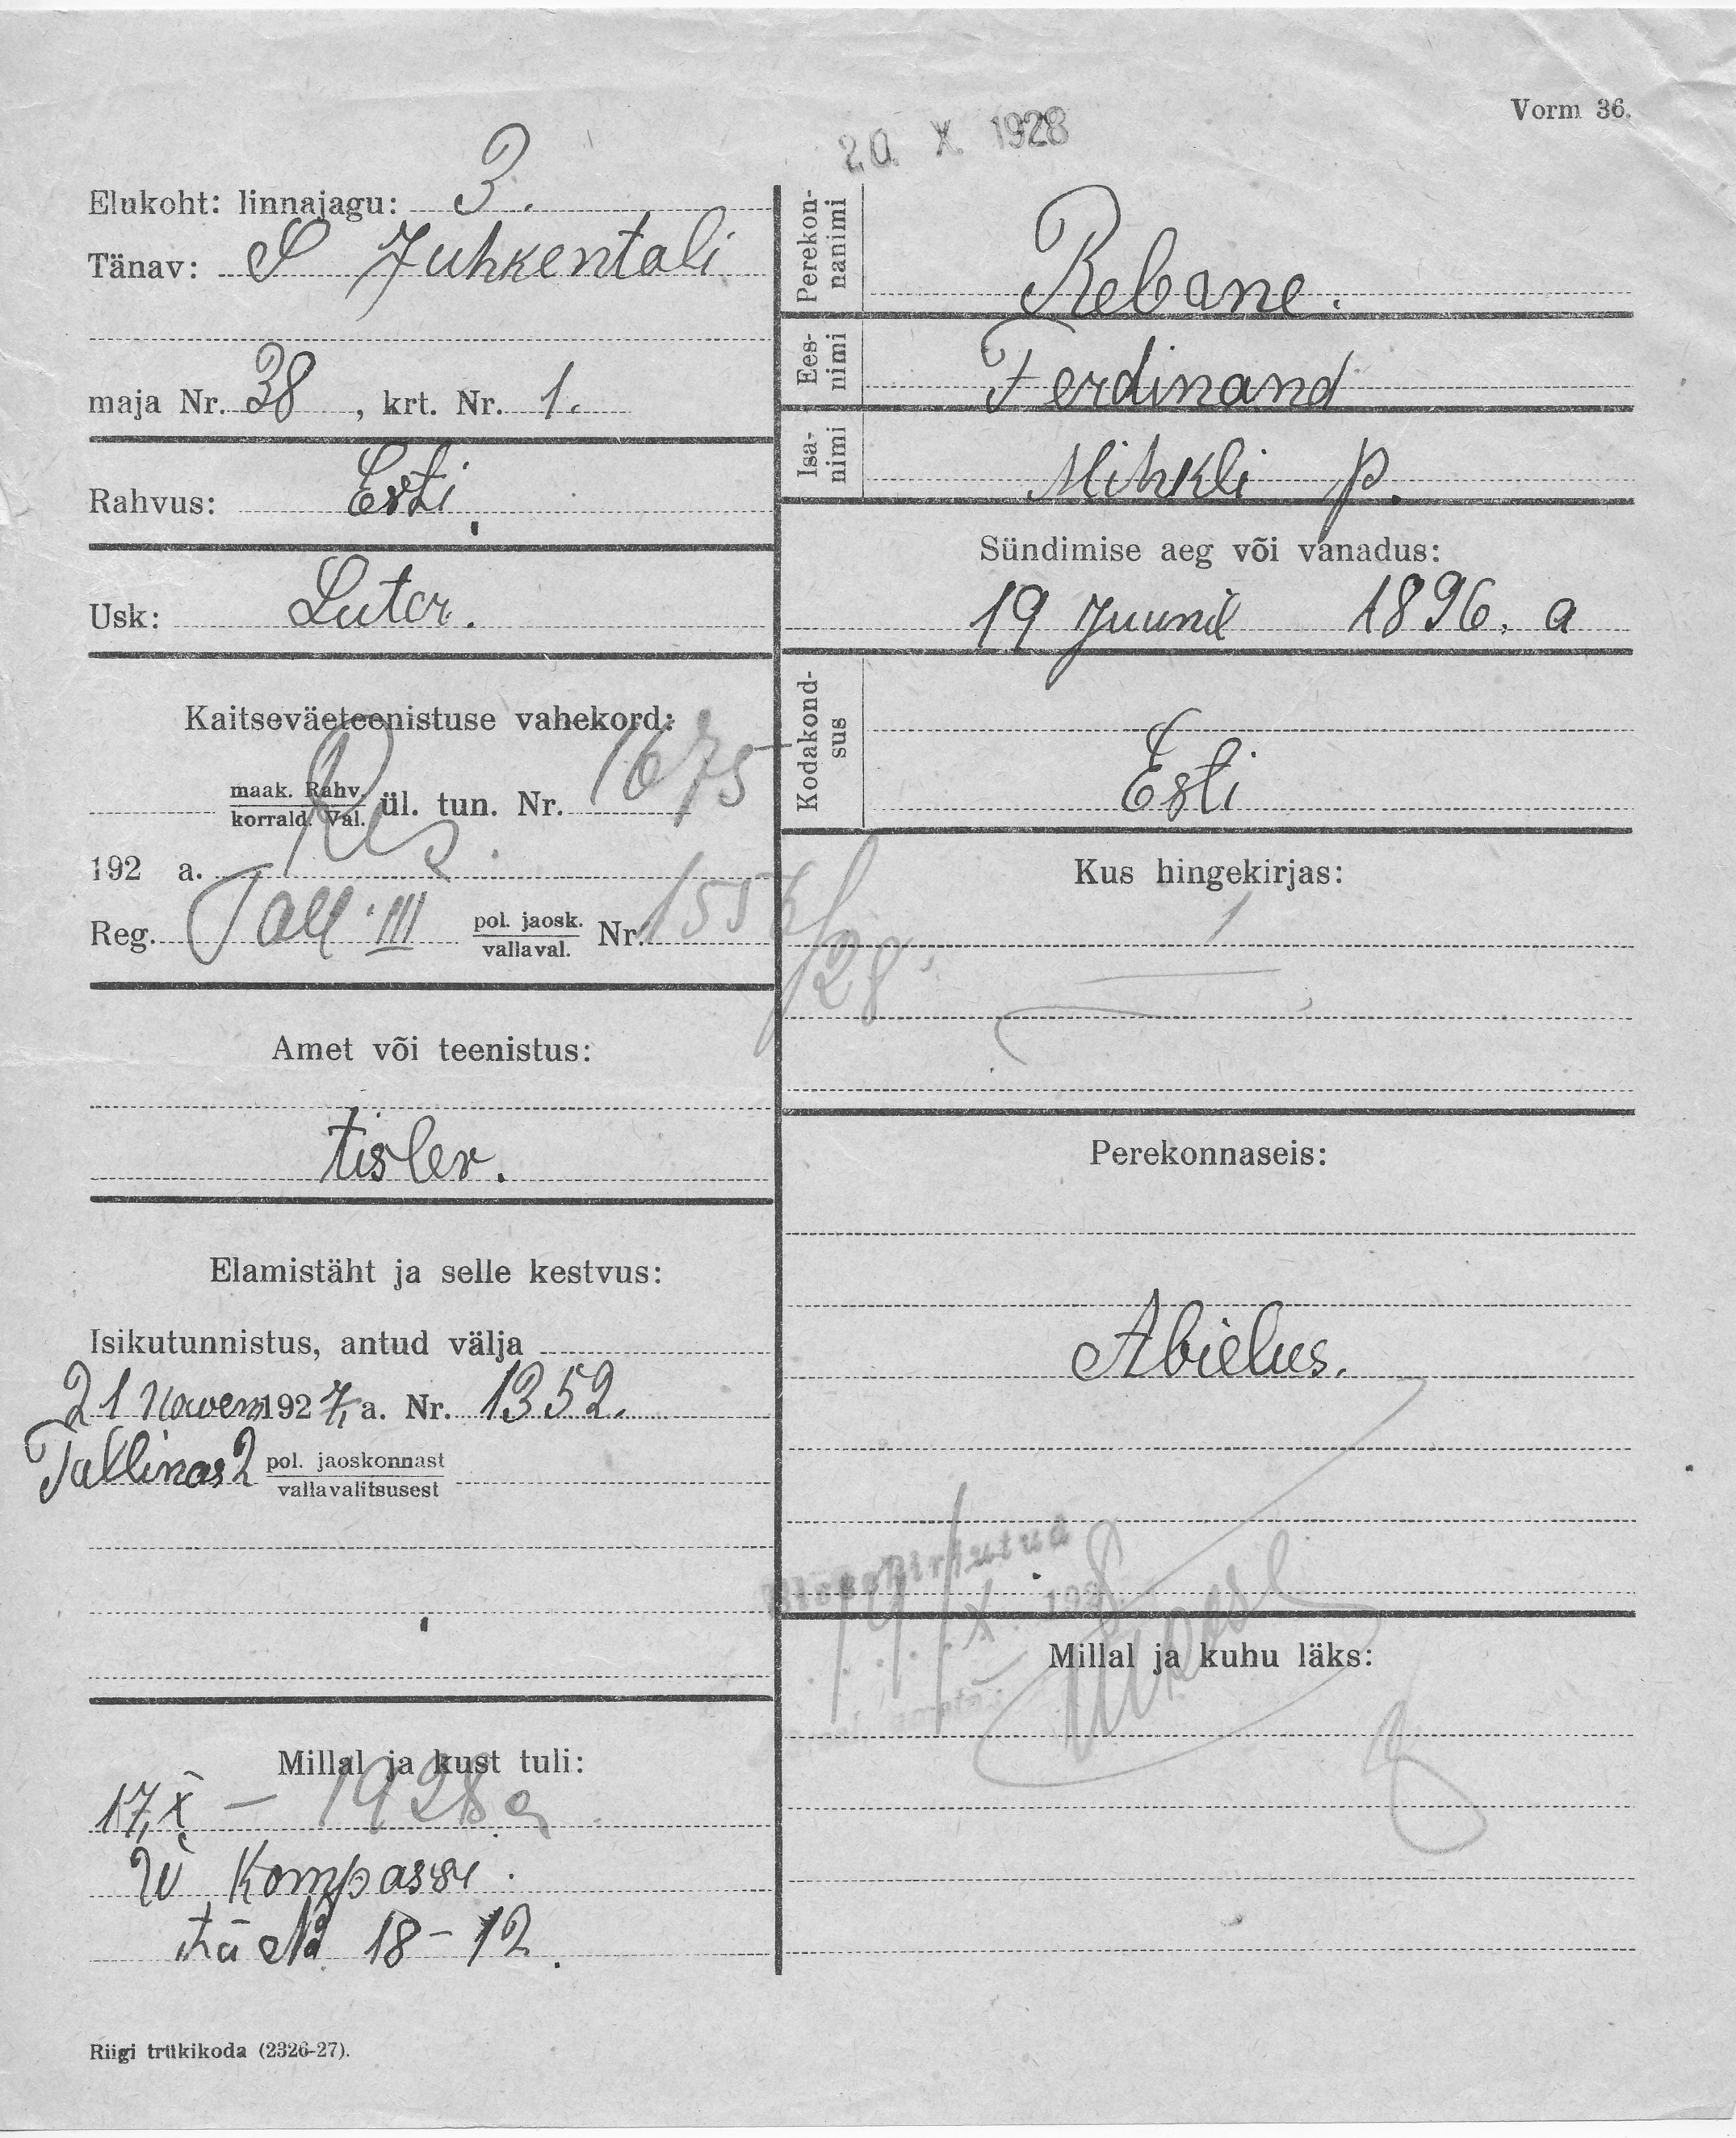 Vorm 36.
20. X 1928
Elukoht: linnajagu: 3.
Tänav: S Juhkentali
maja Nr. 38, krt. Nr. 1.
Rahvus: Esti
Usk: Luter.
Kaitseväeteenistuse vahekord:
maak. Rahv.
korrald. Val. ül. tun. Nr. 1675
192 a. Res.
Reg. Tall. III pol. jaosk.
vallaval. Nr. /28
Amet või teenistus:
tisler.
Elamistäht ja selle kestvus:
Isikutunnistus, antud välja
21 Novem 1927, a. Nr. 1352.
Tallinas 2 pol. jaoskonnast
vallavalitsusest
Millal ja kust tuli:
17, X – 1928 a
W Kompassi
tä № 18-12.
Riigi trükikoda (2326-27).
Perekonnanimi
Rebane.
Eesnimi
Ferdinand
Isanimi
Mihkli p.
Sündimise aeg või vanadus:
19 Juunil 1896. a
Kodakondsus
Esti
Kus hingekirjas:
Perekonnaseis:
Abielus.
Millal ja kuhu läks: